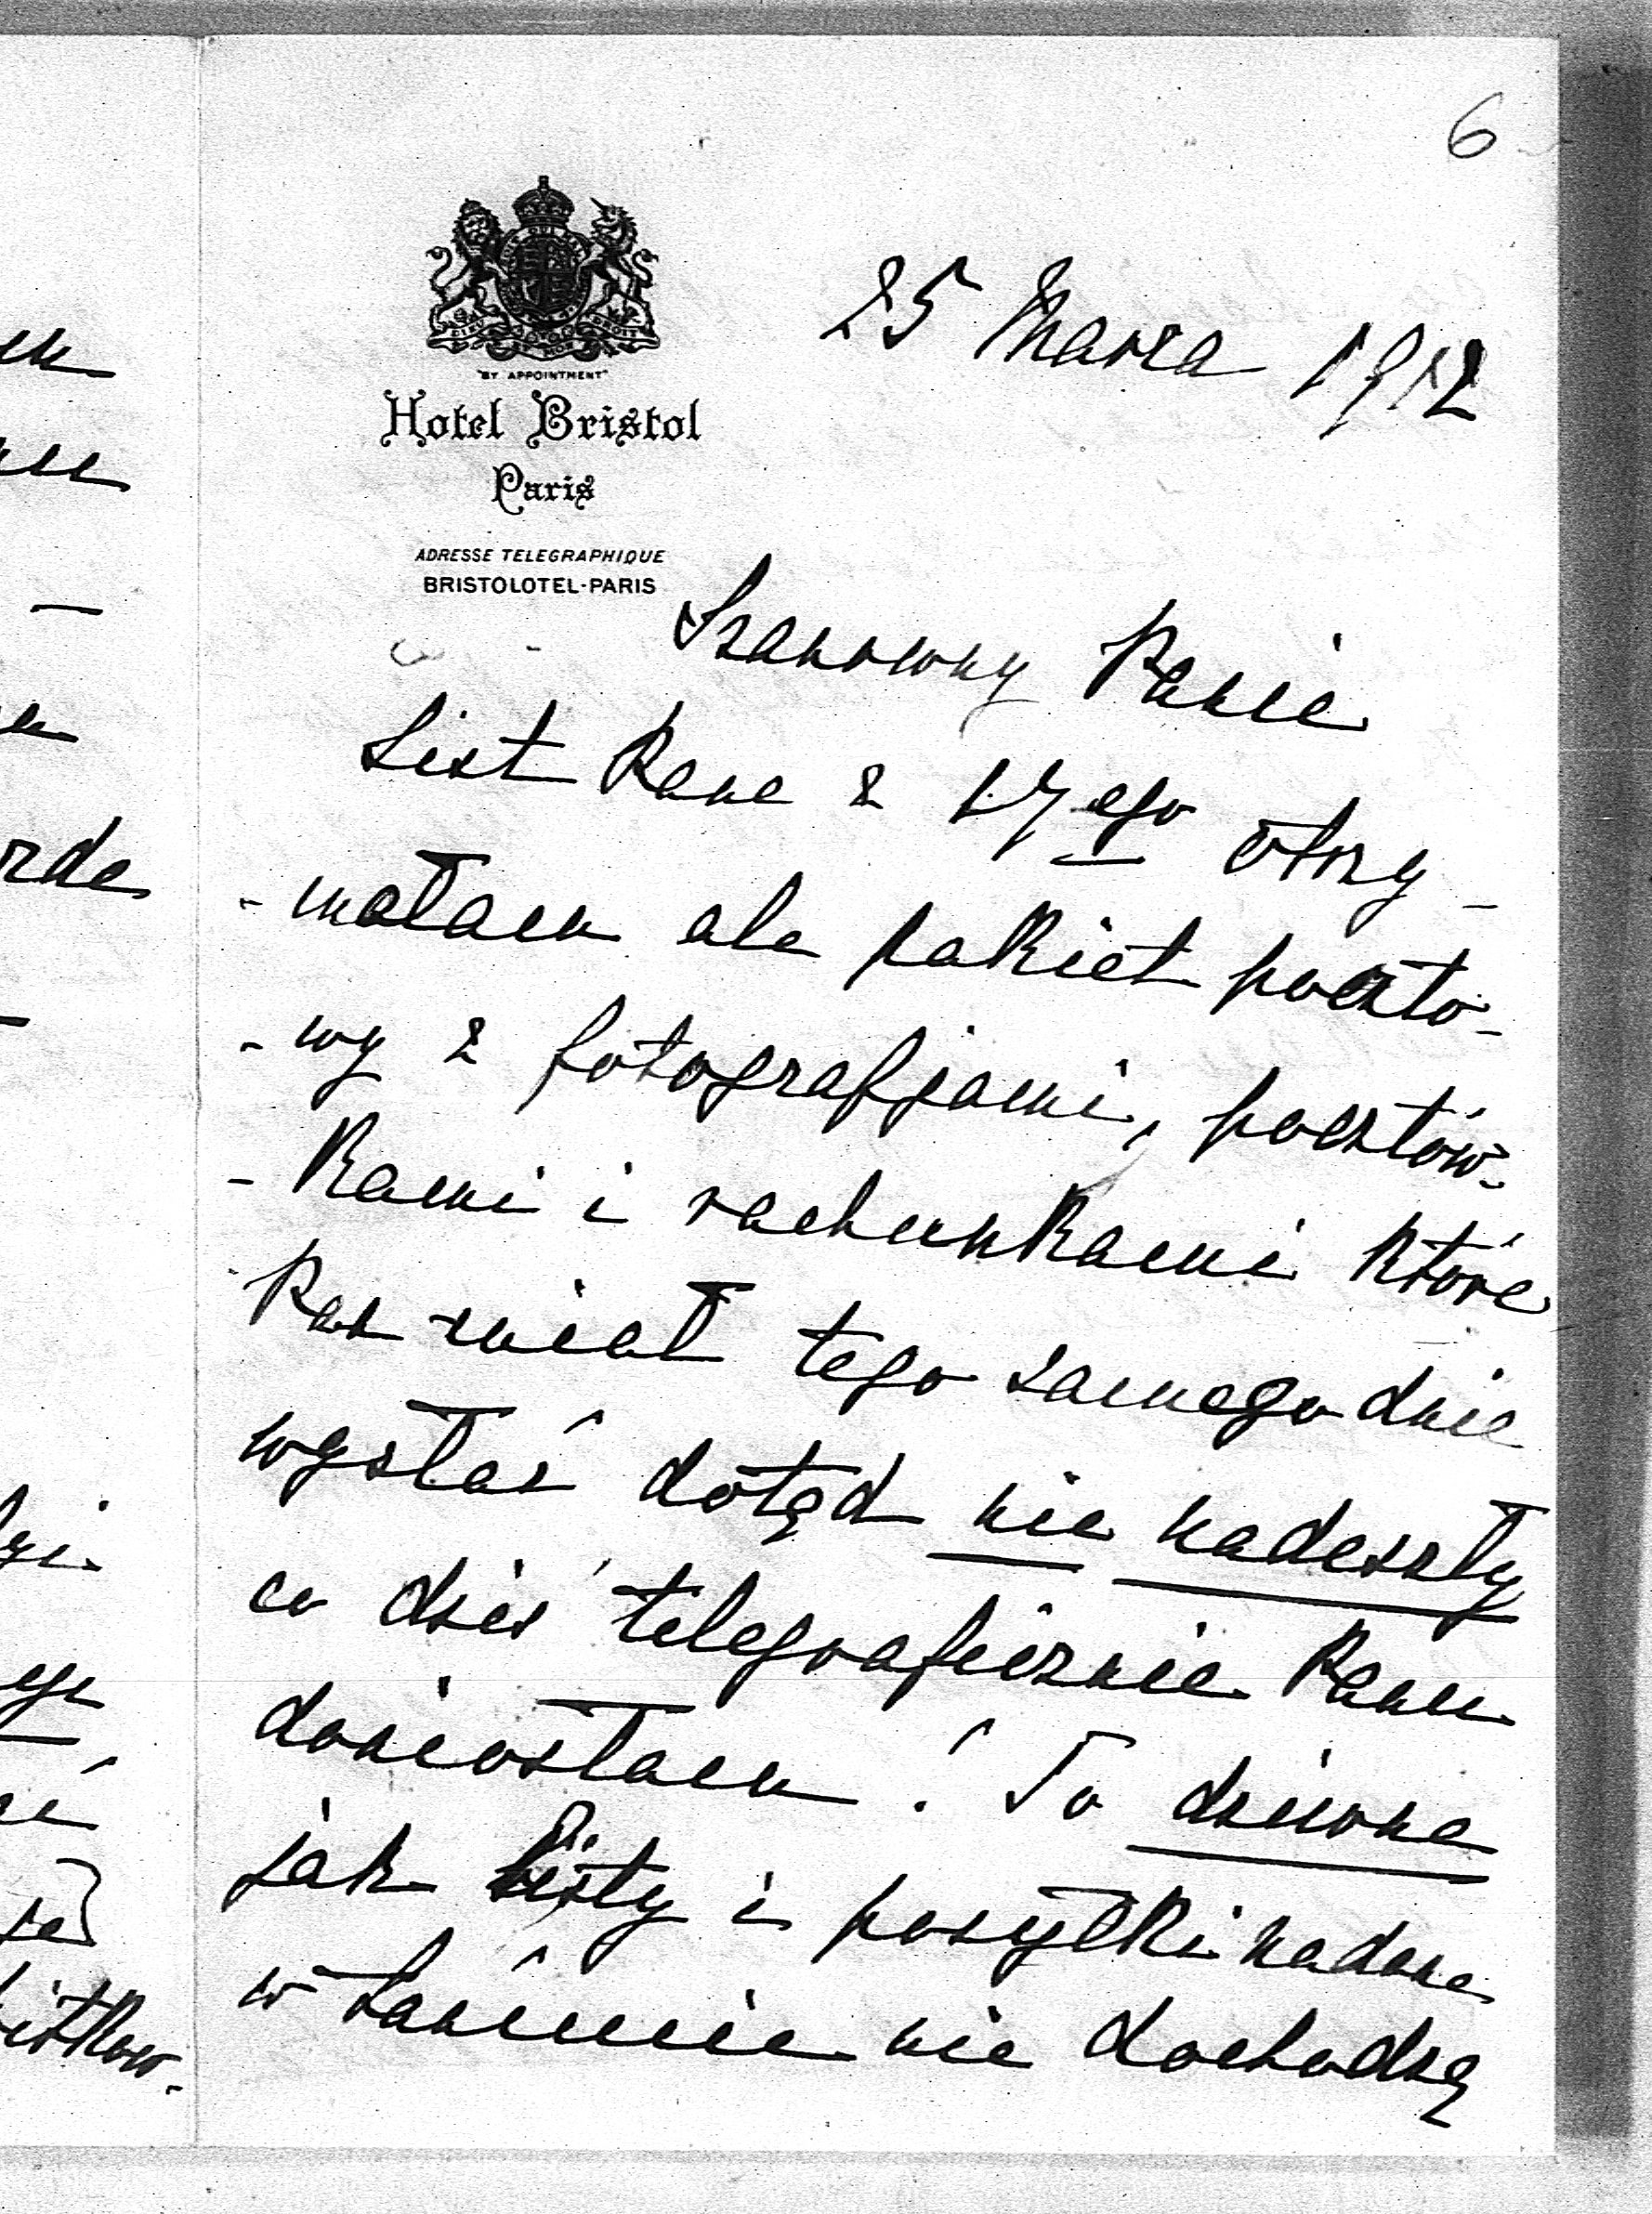 6
25 Marca 1912
"BY APPOINTMENT"
Hotel Bristol
Paris
ADRESSE TELEGRAPHIQUE
BRISTOLOTEL-PARIS
Szanowny Panie
List Pana z 17ego otrzy-
-małam ale pakiet poczto-
-wy z fotografjami, pocztów-
-kami i rachunkami które
Pan miał tego samego dnia
wysłać dotąd nie nadeszły
co dziś telegraficznie Panu
doniosłam. To dziwne
jak listy i posyłki nadane
w Łańcucie nie dochodzą